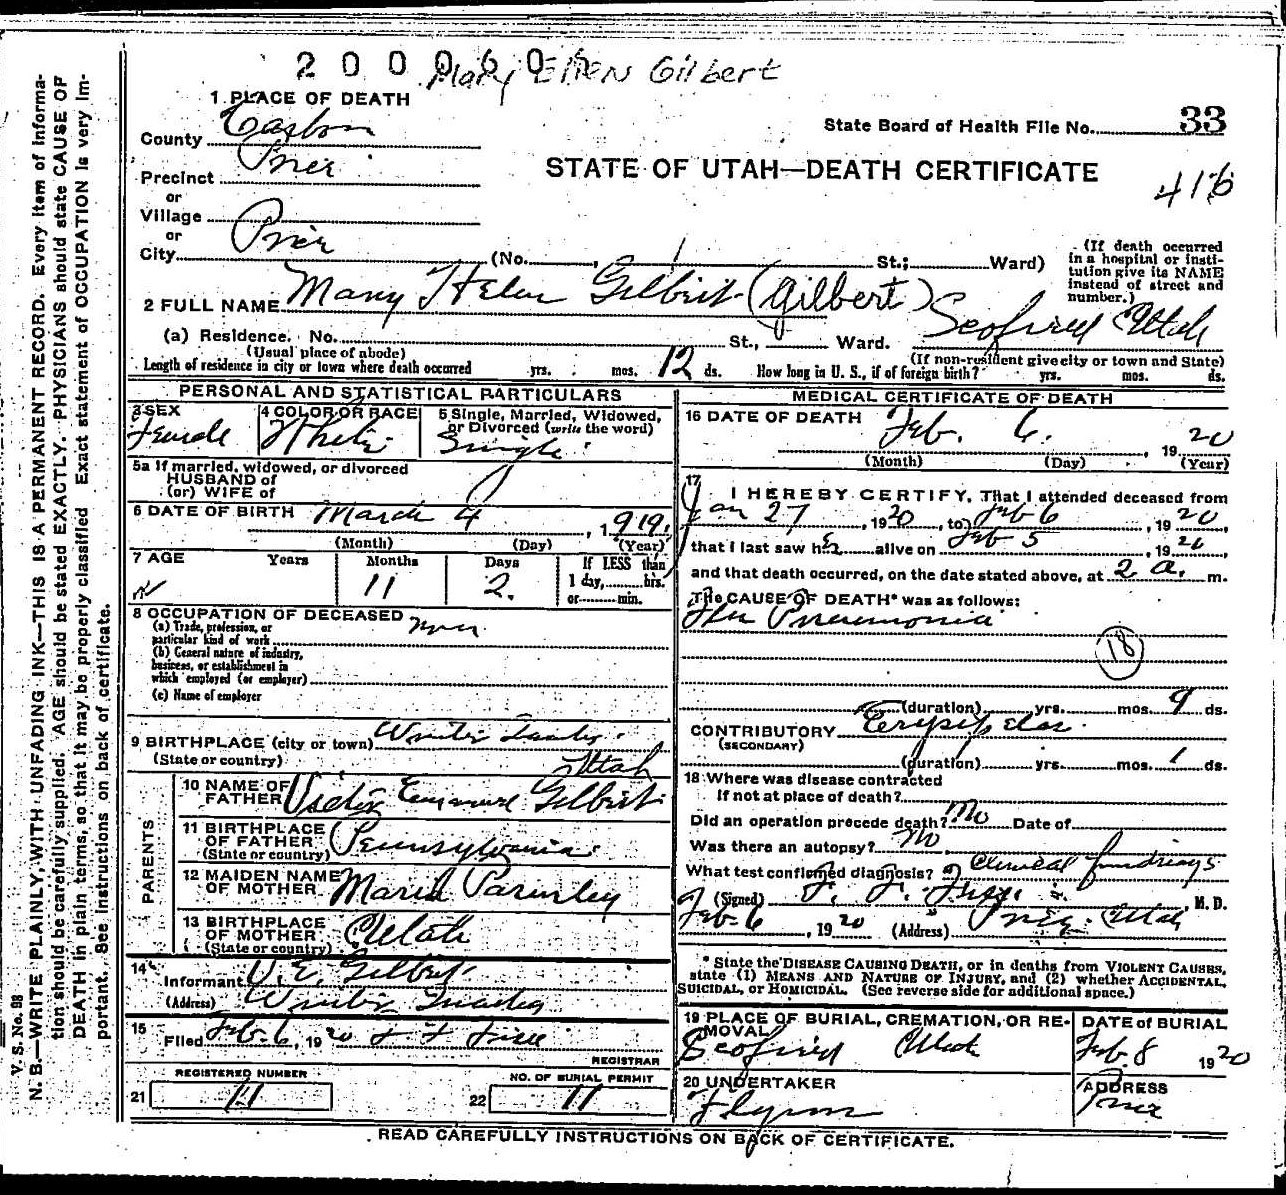 2 0 0 0 6 0
Mary Ellen Gilbert
1 PLACE OF DEATH
County Carbon
State Board of Health File No. 33
STATE OF UTAH—DEATH CERTIFICATE
416
Precinct Price
or
Village
or
City Price (No. , St.; Ward)
(If death occurred in a hospital or institution give its NAME instead of street and number.)
2 FULL NAME Mary Helen Gilbert (Gilbert)
(a) Residence. No. St., Ward. Scofield Utah
(Usual place of abode) (If non-resident give city or town and State)
Length of residence in city or town where death occurred yrs. mos. 12 ds. How long in U. S., if of foreign birth? yrs. mos. ds.
PERSONAL AND STATISTICAL PARTICULARS
3 SEX Female
4 COLOR OR RACE White
5 Single, Married, Widowed, or Divorced (write the word) Single
5a If married, widowed, or divorced
HUSBAND of
(or) WIFE of
6 DATE OF BIRTH March 4, 1919
(Month) (Day) (Year)
7 AGE Years Months 11 Days 2. If LESS than 1 day, hrs. or min.
8 OCCUPATION OF DECEASED
(a) Trade, profession, or particular kind of work
(b) General nature of industry, business, or establishment in which employed (or employer)
(c) Name of employer
9 BIRTHPLACE (city or town) Winter Quarters
(State or country) Utah
PARENTS
10 NAME OF FATHER Victor Emanuel Gilbert
11 BIRTHPLACE OF FATHER (State or country) Pennsylvania
12 MAIDEN NAME OF MOTHER Maria Parmley
13 BIRTHPLACE OF MOTHER (State or country) Utah
14 Informant V. E. Gilbert
(Address) Winter Quarters
15 Filed Feb-6, 1920
REGISTRAR
REGISTERED NUMBER
21 11
NO. OF BURIAL PERMIT
22 11
MEDICAL CERTIFICATE OF DEATH
16 DATE OF DEATH Feb. 6. , 1920
(Month) (Day) (Year)
17 I HEREBY CERTIFY, That I attended deceased from
Jan 27, 1920, to Feb 6, 1920,
that I last saw her alive on Feb 5, 1920,
and that death occurred, on the date stated above, at 2 a. m.
The CAUSE OF DEATH* was as follows:
Flu Pneumonia
18
(duration) yrs. mos. 9 ds.
CONTRIBUTORY Erysipelas
(SECONDARY)
(duration) yrs. mos. 1 ds.
18 Where was disease contracted
If not at place of death?
Did an operation precede death? No Date of
Was there an autopsy? No
What test confirmed diagnosis? Clinical findings
(Signed) , M. D.
Feb-6, 1920 (Address) Price Utah
* State the DISEASE CAUSING DEATH, or in deaths from VIOLENT CAUSES, state (1) MEANS AND NATURE OF INJURY, and (2) whether ACCIDENTAL, SUICIDAL, or HOMICIDAL. (See reverse side for additional space.)
19 PLACE OF BURIAL, CREMATION, OR REMOVAL Scofield Utah
DATE of BURIAL Feb. 8 1920
20 UNDERTAKER Flynn
ADDRESS Price
READ CAREFULLY INSTRUCTIONS ON BACK OF CERTIFICATE.
V. S. No. 98
N. B.—WRITE PLAINLY, WITH UNFADING INK—THIS IS A PERMANENT RECORD. Every item of information should be carefully supplied. AGE should be stated EXACTLY. PHYSICIANS should state CAUSE OF DEATH in plain terms, so that it may be properly classified. Exact statement of OCCUPATION is very important. See instructions on back of certificate.